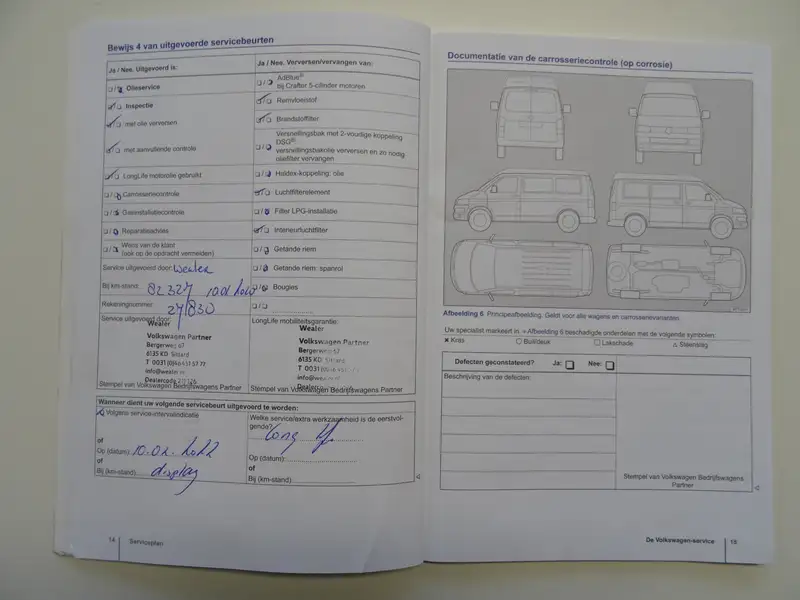 Bewijs 4 van uitgevoerde servicebeurten
Ja / Nee. Uitgevoerd is:
Olieservice
Inspectie
met olie verversen
met aanvullende controle
LongLife motorolie gebruikt
Carrosseriecontrole
Gasinstallatiecontrole
Reparatieadvies
Wens van de klant
(ook op de opdracht vermelden)
Ja / Nee. Verversen/vervangen van:
AdBlue®
bij Crafter 5-cilinder motoren
Remvloeistof
Brandstoffilter
Versnellingsbak met 2-voudige koppeling
DSG®:
versnellingsbakolie verversen en zo nodig
oliefilter vervangen
Haldex-koppeling: olie
Luchtfilterelement
Filter LPG-installatie
Interieurluchtfilter
Getande riem
Getande riem: spanrol
Bougies
Service uitgevoerd door: Wealer
Bij km-stand: 82327
Rekeningnummer: 27/830
Service uitgevoerd door:
Wealer
Volkswagen Partner
Bergerweg 67
6135 KD Sittard
T 0031 (0)46 451 57 77
info@wealer
Dealercode
Stempel van Volkswagen Bedrijfswagens Partner
LongLife mobiliteitsgarantie:
Wealer
Volkswagen Partner
Bergerweg 67
6135 KD Sittard
T 0031
info@wealer
Dealercode
Stempel van Volkswagen Bedrijfswagens Partner
Wanneer dient uw volgende servicebeurt uitgevoerd te worden:
Volgens service-intervalindicatie
of
Op (datum): 10-02-2022
of
Bij (km-stand): display
Welke service/extra werkzaamheid is de eerstvol-
gende?
Long
Op (datum):
of
Bij (km-stand):
14 Serviceplan
Documentatie van de carrosseriecontrole (op corrosie)
Afbeelding 6 Principeafbeelding. Geldt voor alle wagens en carrosserievarianten.
Uw specialist markeert in → Afbeelding 6 beschadigde onderdelen met de volgende symbolen:
Kras Buil/deuk Lakschade Steenslag
Defecten geconstateerd? Ja: Nee:
Beschrijving van de defecten:
Stempel van Volkswagen Bedrijfswagens
Partner
De Volkswagen-service 15